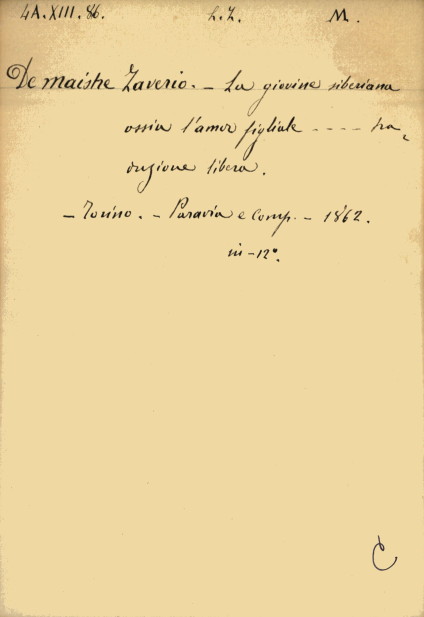 4A.XIII.86. L.Z. M.
De Maistre Zaverio. - La giovine siberiana
ossia l'amor figliale - - - - tra-
duzione libera.
- Torino. - Paravia e Comp. - 1862.
in-12°.
C